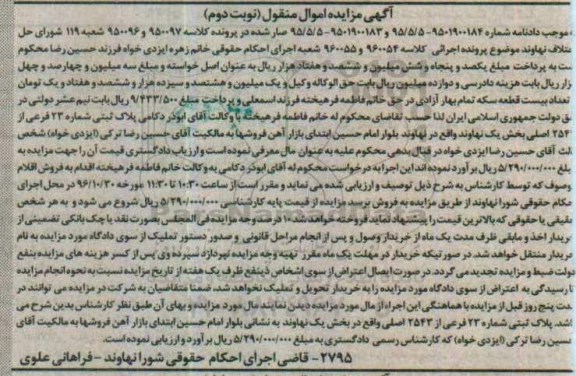 آگهی مزایده اموال منقول (نوبت دوم)
موجب دادنامه شماره ۹۵۰۱۹۰۰۱۸۴ - ۹۵/۵/۵ و ۹۵۰۱۹۰۰۱۸۳ - ۹۵/۵/۵ صار شده در پرونده کلاسه ۹۵۰۰۹۷ و ۹۵۰۰۹۶ شعبه ۱۱۹ شورای حل
ختلاف نهاوند موضوع پرونده اجرائی کلاسه ۹۶۰۰۵۴ و ۹۶۰۰۵۵ شعبه اجرای احکام حقوقی خانم زهره ایزدی خواه فرزند حسین رضا محکوم
ست به پرداخت مبلغ یکصد و پنجاه و شش میلیون و ششصد و هفتاد هزار ریال به عنوان اصل خواسته و مبلغ سه میلیون و چهارصد و چهل
زار ریال بابت هزینه دادرسی و دوازده میلیون ریال بابت حق الوکاله وکیل و یک میلیون و هشتصد و سیزده هزار و ششصد و هفتاد و یک تومان
تعداد بیست قطعه سکه تمام بهار آزادی در حق خانم فاطمه فرهیخته فرزند اسمعلی و پرداخت مبلغ ۹/۴۳۳/۵۰۰ ریال بابت نیم عشر دولتی در
ق دولت جمهوری اسلامی ایران لذا حسب تقاضای محکوم له خانم فاطمه فرهیخته با وکالت آقای ابوذر دکامی پلاک ثبتی شماره ۲۳ فرعی از
۲۵۴۳ اصلی بخش یک نهاوند واقع در نهاوند بلوار امام حسین ابتدای بازار آهن فروشها به مالکیت آقای حسین رضا ترکی (ایزدی خواه) شخص
الث آقای حسین رضا ایزدی خواه در قبال بدهی محکوم علیه به عنوان مال معرفی نموده است و ارزیاب دادگستری قیمت آن را جهت مزایده به
بلغ ۵/۲۹۰/۰۰۰/۰۰۰ ریال برآورد نموده اند این اجرا به درخواست محکوم له آقای ابوذر دکامی به وکالت خانم فاطمه فرهیخته اقدام به فروش اقلام
وصوف که توسط کارشناس به شرح ذیل توصیف و ارزیابی شده می نماید و مقرر است از ساعت ۱۰:۳۰ تا ۱۱:۳۰ مورخه ۹۶/۱۰/۳۰ در محل اجرای
حکام حقوقی شورا نهاوند از طریق مزایده به فروش برسد مزایده از قیمت پایه کارشناسی ۵/۲۹۰/۰۰۰/۰۰۰ ریال شروع می شود و به هر شخص
قیقی یا حقوقی که بالاترین قیمت را پیشنهاد نماید فروخته خواهد شد. ۱۰ درصد وجه مزایده فی المجلس بصورت نقد یا چک بانکی تضمینی از
ریدار اخذ و مابقی ظرف مدت یک ماه از خریدار وصول و پس از انجام مراحل قانونی و صدور دستور تملیک از سوی دادگاه مورد مزایده به نام
ریدار منتقل خواهد شد. در صورتیکه خریدار در مهلت یک ماه مقرر تهیه وجه مزایده نپردازد سپرده وی پس از کسر هزینه های مزایده بنفع
ولت ضبط و مزایده تجدید می گردد. در صورت ایصال اعتراض از سوی اشخاص ذینفع ظرف یک هفته از تاریخ مزایده نسبت به نحوه انجام مزایده
تا رسیدگی به اعتراض از سوی دادگاه مورد مزایده را به خریدار تحویل و تملیک نخواهد شد، ضمنا متقاضیان به شرکت در مزایده می توانند در
دت پنج روز قبل از مزایده با هماهنگی این اجرا از مال مورد مزایده دیدن نمایند مال مورد مزایده و بهای آن طبق نظر کارشناس بدین شرح می
اشد. پلاک ثبتی شماره ۲۳ فرعی از ۲۵۴۳ اصلی واقع در بخش یک نهاوند به نشانی بلوار امام حسین ابتدای بازار آهن فروشها به مالکیت آقای
سین رضا ترکی (ایزدی خواه) که کارشناس رسمی دادگستری به مبلغ ۵/۲۹۰/۰۰۰/۰۰۰ ریال برآورد و ارزیابی نموده است.
۲۷۹۵ - قاضی اجرای احکام حقوقی شورا نهاوند - فراهانی علوی